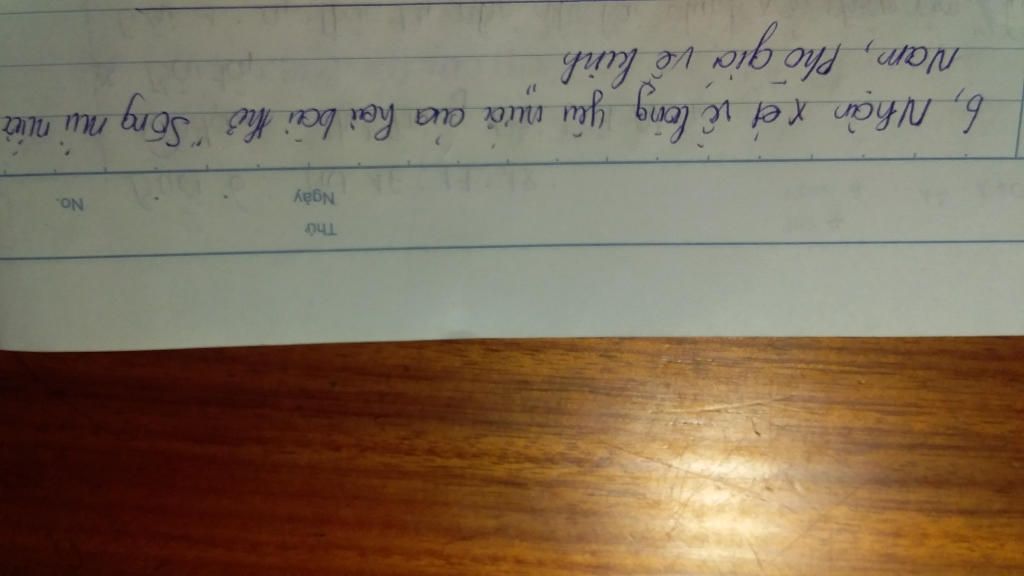 No.
Thứ
Ngày
6, Nhận xét về lòng yêu nước của hai bài thơ "Sông núi nước
Nam, Phò giá về kinh"